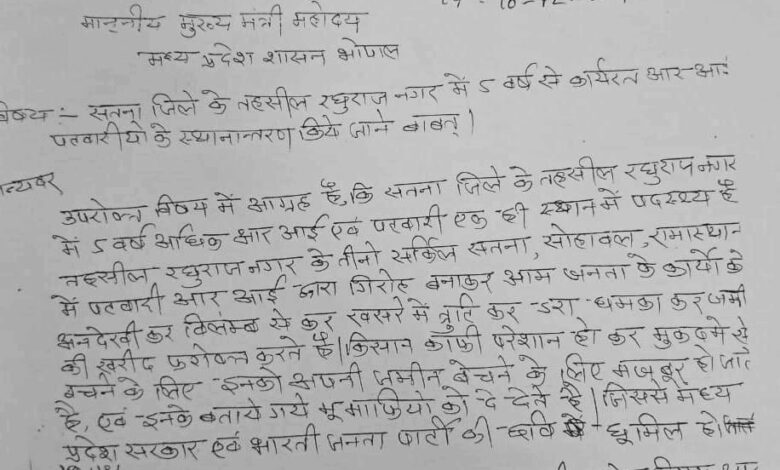 माननीय मुख्य मंत्री महोदय
मध्य प्रदेश शासन भोपाल
विषय :- सतना जिले के तहसील रघुराज नगर में 5 वर्ष से कार्यरत आर-आई
पटवारीयो के स्थानान्तरण किये जाने बाबत् ।
न्यवर
उपरोक्त विषय में आग्रह है, कि सतना जिले के तहसील रघुराज नगर
में 5 वर्ष अधिक आर आई एवं पटवारी एक ही स्थान में पदस्थ्य है
तहसील रघुराज नगर के तीनो सर्किल सतना, सोहावल, रामास्थान
में पटवारी आर आई द्वारा गिरोह बनाकर आम जनता के कार्यो के
अनदेखी कर विलम्ब से कर खसरे में त्रुटि कर डरा धमका कर जमी
की खरीद फरोक्त करते है। किसान काफी परेशान हो कर मुकदमे से
बचने के लिए इनको अपनी जमीन बेचने के लिए मजबूर हो जाते
है, एवं इनके बताये गये भू माफियो को दे देते है। जिससे मध्य
प्रदेश सरकार एवं भारती जनता पार्टी की छवि धूमिल हो